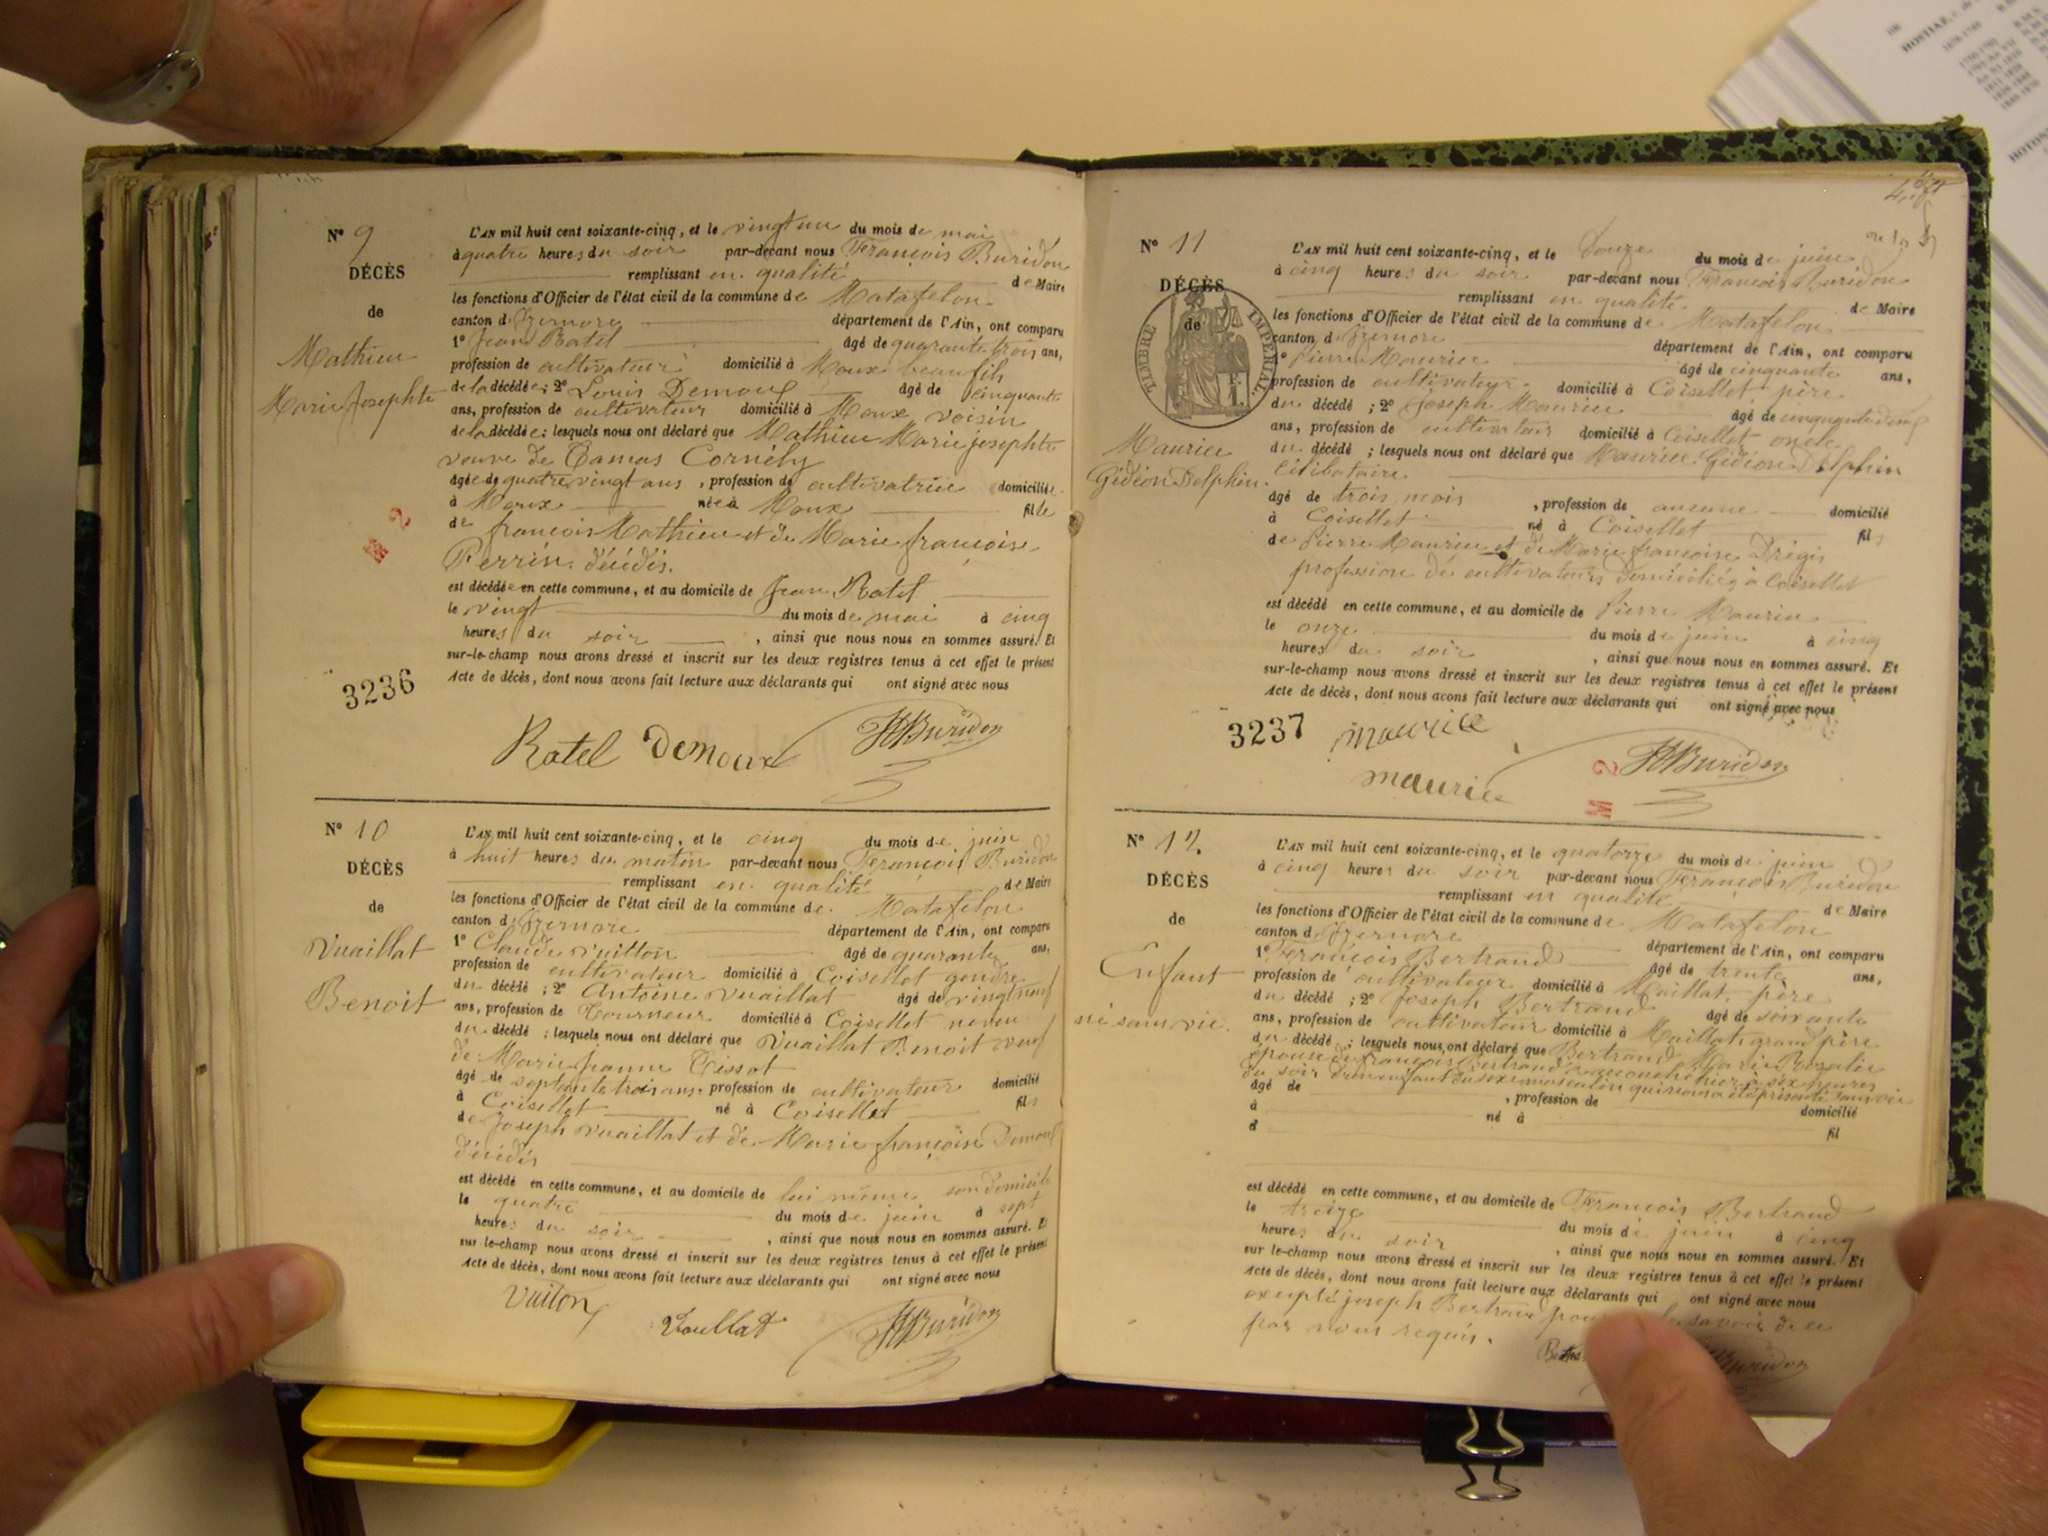 N° 9
DÉCÈS
de
Mathieu
Marie Josephte
L'AN mil huit cent soixante-cinq, et le vingt un du mois de mai
à quatre heures du soir par-devant nous François Buridon
remplissant en qualité de Maire
les fonctions d'Officier de l'état civil de la commune de Matafelon
canton d'Izernore département de l'Ain, ont comparu
1° Jean Ratel âgé de quarante trois ans,
profession de cultivateur domicilié à Moux beau fils
de la décédée; 2° Louis Demoux âgé de cinquante
ans, profession de cultivateur domicilié à Moux voisin
de la décédée; lesquels nous ont déclaré que Mathieu Marie josephte
veuve de Tamas Cornély
âgée de quatre vingt ans, profession de cultivatrice domiciliée
à Moux née à Moux fille
de françois Mathieu et de Marie françoise
Perrin décédés.
est décédée en cette commune, et au domicile de Jean Ratel
le vingt du mois de mai à cinq
heures du soir, ainsi que nous nous en sommes assuré. Et
sur-le-champ nous avons dressé et inscrit sur les deux registres tenus à cet effet le présent
Acte de décès, dont nous avons fait lecture aux déclarants qui ont signé avec nous
3236
Ratel Demoux Buridon
N° 10
DÉCÈS
de
Vuaillat
Benoit
L'AN mil huit cent soixante-cinq, et le cinq du mois de juin
à huit heures du matin par-devant nous François Buridon
remplissant en qualité de Maire
les fonctions d'Officier de l'état civil de la commune de Matafelon
canton d'Izernore département de l'Ain, ont comparu
1° Claude Vuitton âgé de quarante ans,
profession de cultivateur domicilié à Coisellet gendre
du décédé; 2° Antoine Vuaillat âgé de vingt neuf
ans, profession de Tourneur domicilié à Coisellet neveu
du décédé; lesquels nous ont déclaré que Vuaillat Benoit veuf
de Marie jeanne Tissot
âgé de septante trois ans, profession de cultivateur domicilié
à Coisellet né à Coisellet fils
de Joseph Vuaillat et de Marie françoise Demoux
décédés
est décédé en cette commune, et au domicile de lui même son domicile
le quatre du mois de juin à sept
heures du soir, ainsi que nous nous en sommes assuré. Et
sur le-champ nous avons dressé et inscrit sur les deux registres tenus à cet effet le présent
Acte de décès, dont nous avons fait lecture aux déclarants qui ont signé avec nous
Vuiton
Buridon
N° 11
DÉCÈS
de
TIMBRE IMPÉRIAL
Maurice
Gédéon Delphin
L'AN mil huit cent soixante-cinq, et le Douze du mois de juin
à cinq heures du soir par-devant nous François Buridon
remplissant en qualité de Maire
les fonctions d'Officier de l'état civil de la commune de Matafelon
canton d'Izernore département de l'Ain, ont comparu
1° Pierre Maurice âgé de cinquante ans,
profession de cultivateur domicilié à Coisellet père
du décédé; 2° Joseph Maurice âgé de cinquante cinq
ans, profession de cultivateur domicilié à Coisellet oncle
du décédé; lesquels nous ont déclaré que Maurice Gédéon Delphin
célibataire
âgé de trois mois, profession de aucune domicilié
à Coisellet né à Coisellet fils
de Pierre Maurice et de Marie françoise Drégis
profession de cultivateurs domiciliés à Coisellet
est décédé en cette commune, et au domicile de Pierre Maurice
le onze du mois de juin à cinq
heures du soir, ainsi que nous nous en sommes assuré. Et
sur-le-champ nous avons dressé et inscrit sur les deux registres tenus à cet effet le présent
Acte de décès, dont nous avons fait lecture aux déclarants qui ont signé avec nous
3237 maurice
maurice Buridon
N° 12
DÉCÈS
de
Enfant
né sans vie
L'AN mil huit cent soixante-cinq, et le quatorze du mois de juin
à cinq heures du soir par-devant nous François Buridon
remplissant en qualité de Maire
les fonctions d'Officier de l'état civil de la commune de Matafelon
canton d'Izernore département de l'Ain, ont comparu
1° François Bertrand âgé de trente ans,
profession de cultivateur domicilié à Maillat père
du décédé; 2° Joseph Bertrand âgé de soixante
ans, profession de cultivateur domicilié à Maillat grand père
du décédé; lesquels nous ont déclaré que Bertrand Marie Rosalie
épouse de françois Bertrand a accouché hier à six heures
du soir d'un enfant du sexe masculin qui nous a été présenté sans vie
âgé de , profession de domicilié
à né à
d fil
est décédé en cette commune, et au domicile de François Bertrand
le treize du mois de juin à cinq
heures du soir, ainsi que nous nous en sommes assuré. Et
sur le-champ nous avons dressé et inscrit sur les deux registres tenus à cet effet le présent
Acte de décès, dont nous avons fait lecture aux déclarants qui ont signé avec nous
excepté joseph Bertrand savoir de ce
par nous requis.
Buridon